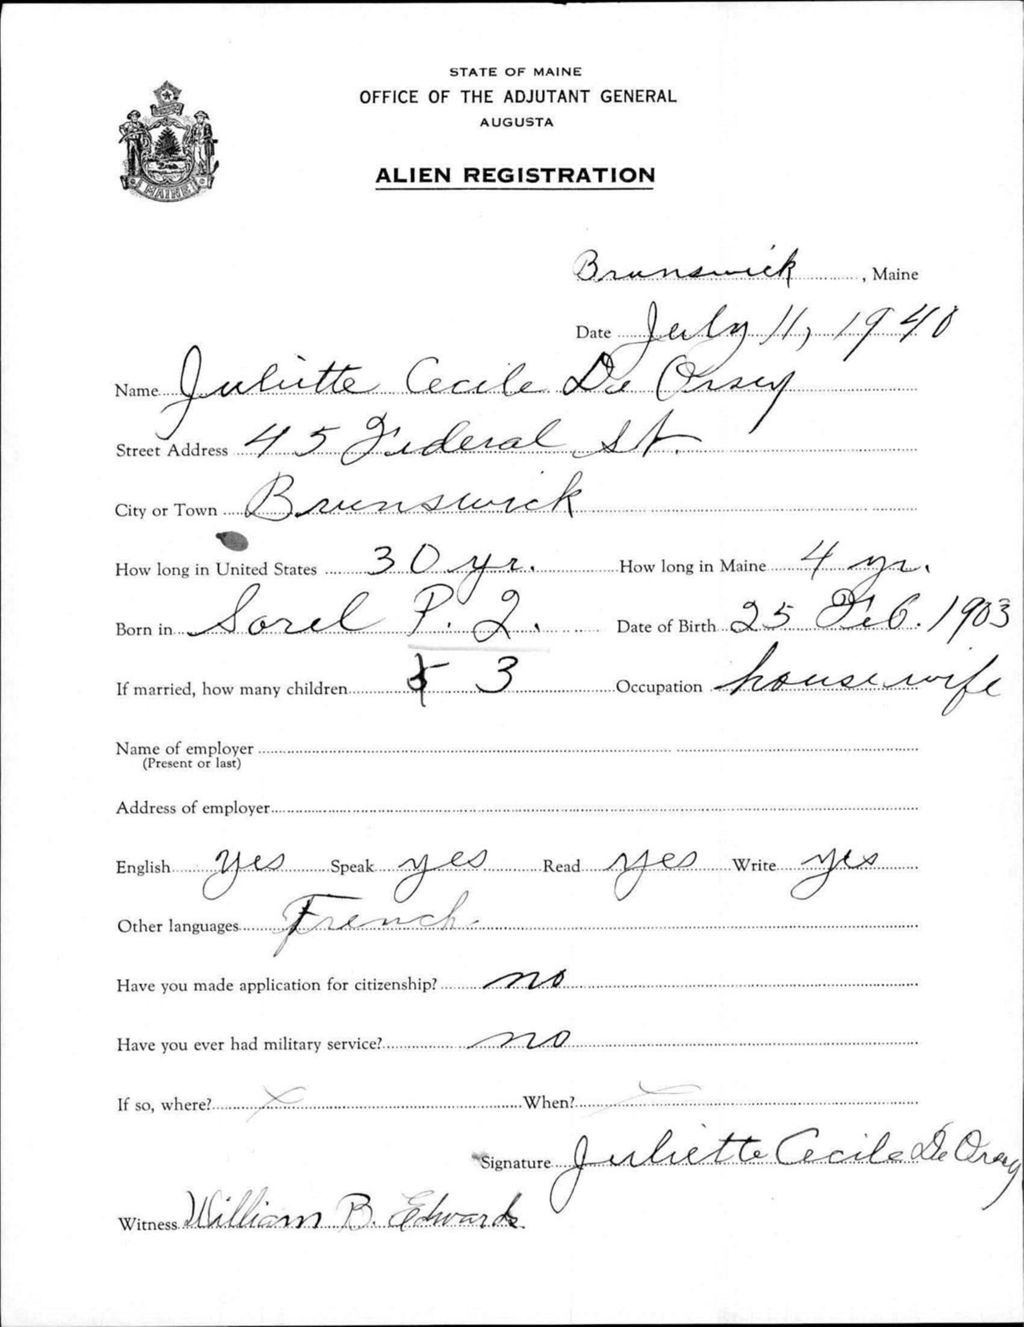 STATE OF MAINE
OFFICE OF THE ADJUTANT GENERAL
AUGUSTA
ALIEN REGISTRATION
MAINE
Brunswick, Maine
Date July 11, 1940
Name Juliette Cecile De Orsey
Street Address 45 Federal St.
City or Town Brunswick
How long in United States 30 yr. How long in Maine 4 yr.
Born in Sorel P. Q. Date of Birth 25 Feb. 1903
If married, how many children 3 Occupation housewife
Name of employer
(Present or last)
Address of employer
English yes Speak yes Read yes Write yes
Other languages French
Have you made application for citizenship? no
Have you ever had military service? no
If so, where? When?
Signature Juliette Cecile De Orsey
Witness William B. Edwards